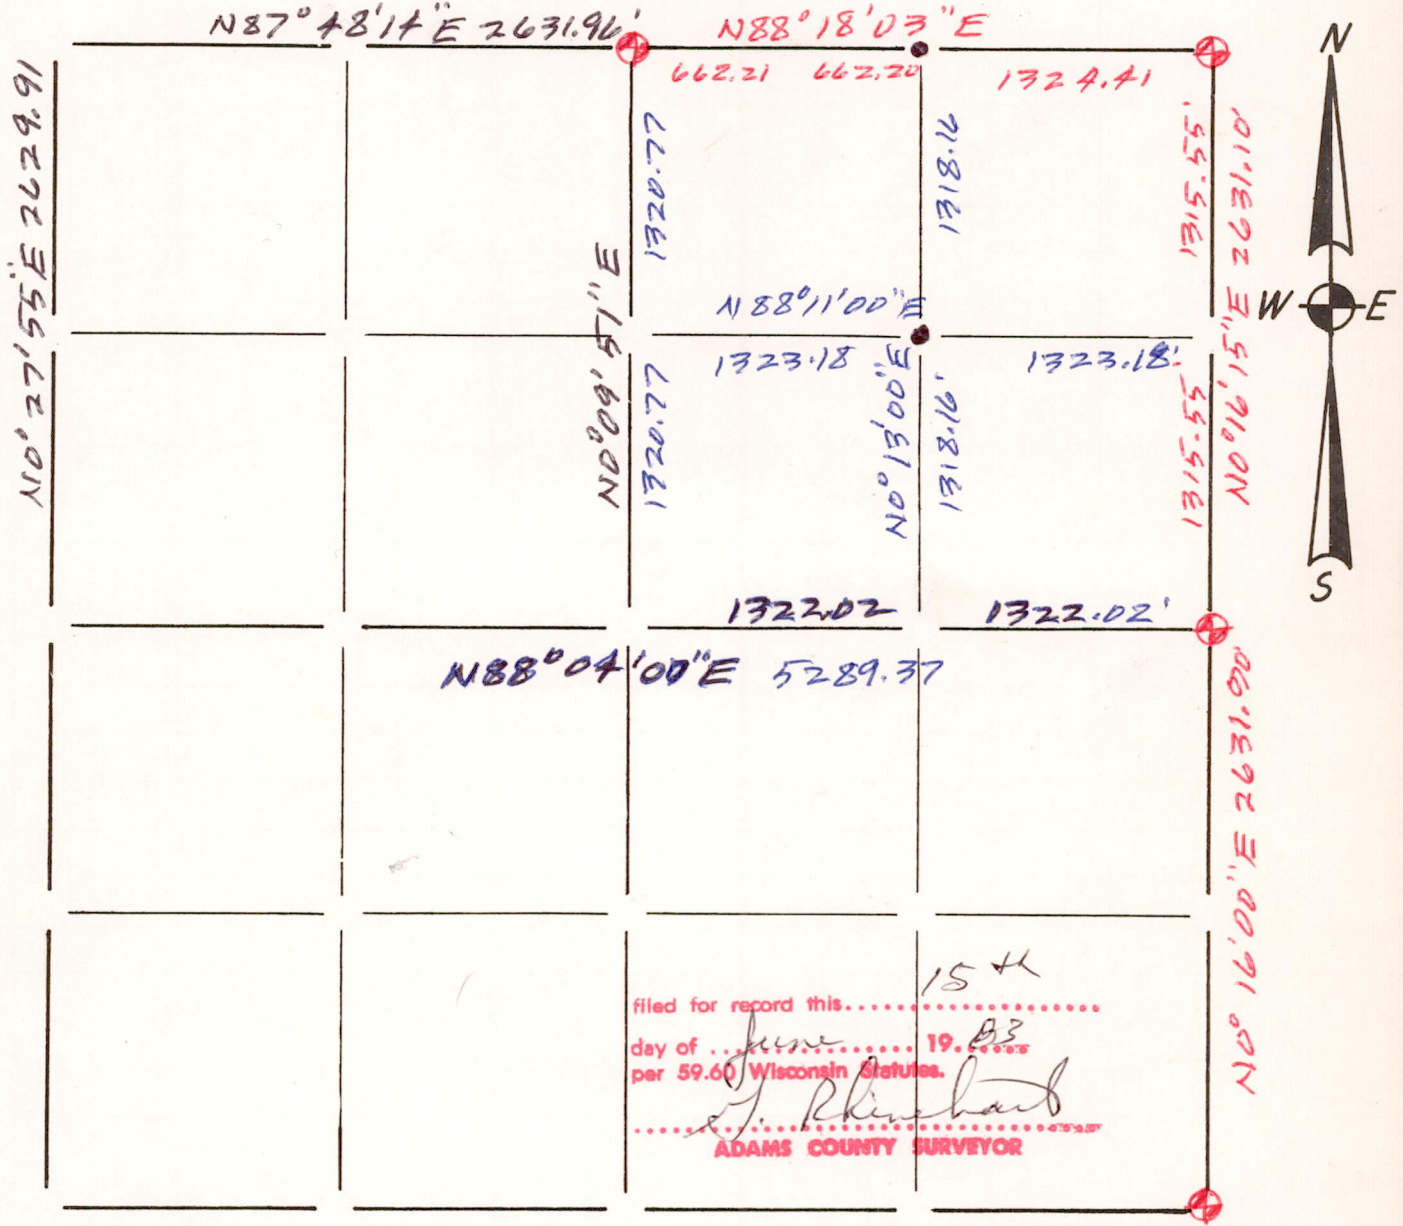 N87°48'14"E 2631.96'
N88°18'03"E
662.21 662.20
1324.41
N0°27'55"E 2629.91
1320.77
1318.16
1315.55'
N0°16'15"E 2631.10'
N
W E
S
N0°09'51"E
N88°11'00"E
1323.18
1323.18'
1320.77
N0°13'00"E
1318.16'
1315.55
1322.02
1322.02'
N88°04'00"E 5289.37
N0°16'00"E 2631.90'
filed for record this 15th
day of June 19 83
per 59.60 Wisconsin Statutes.
G. Rhinehart
ADAMS COUNTY SURVEYOR